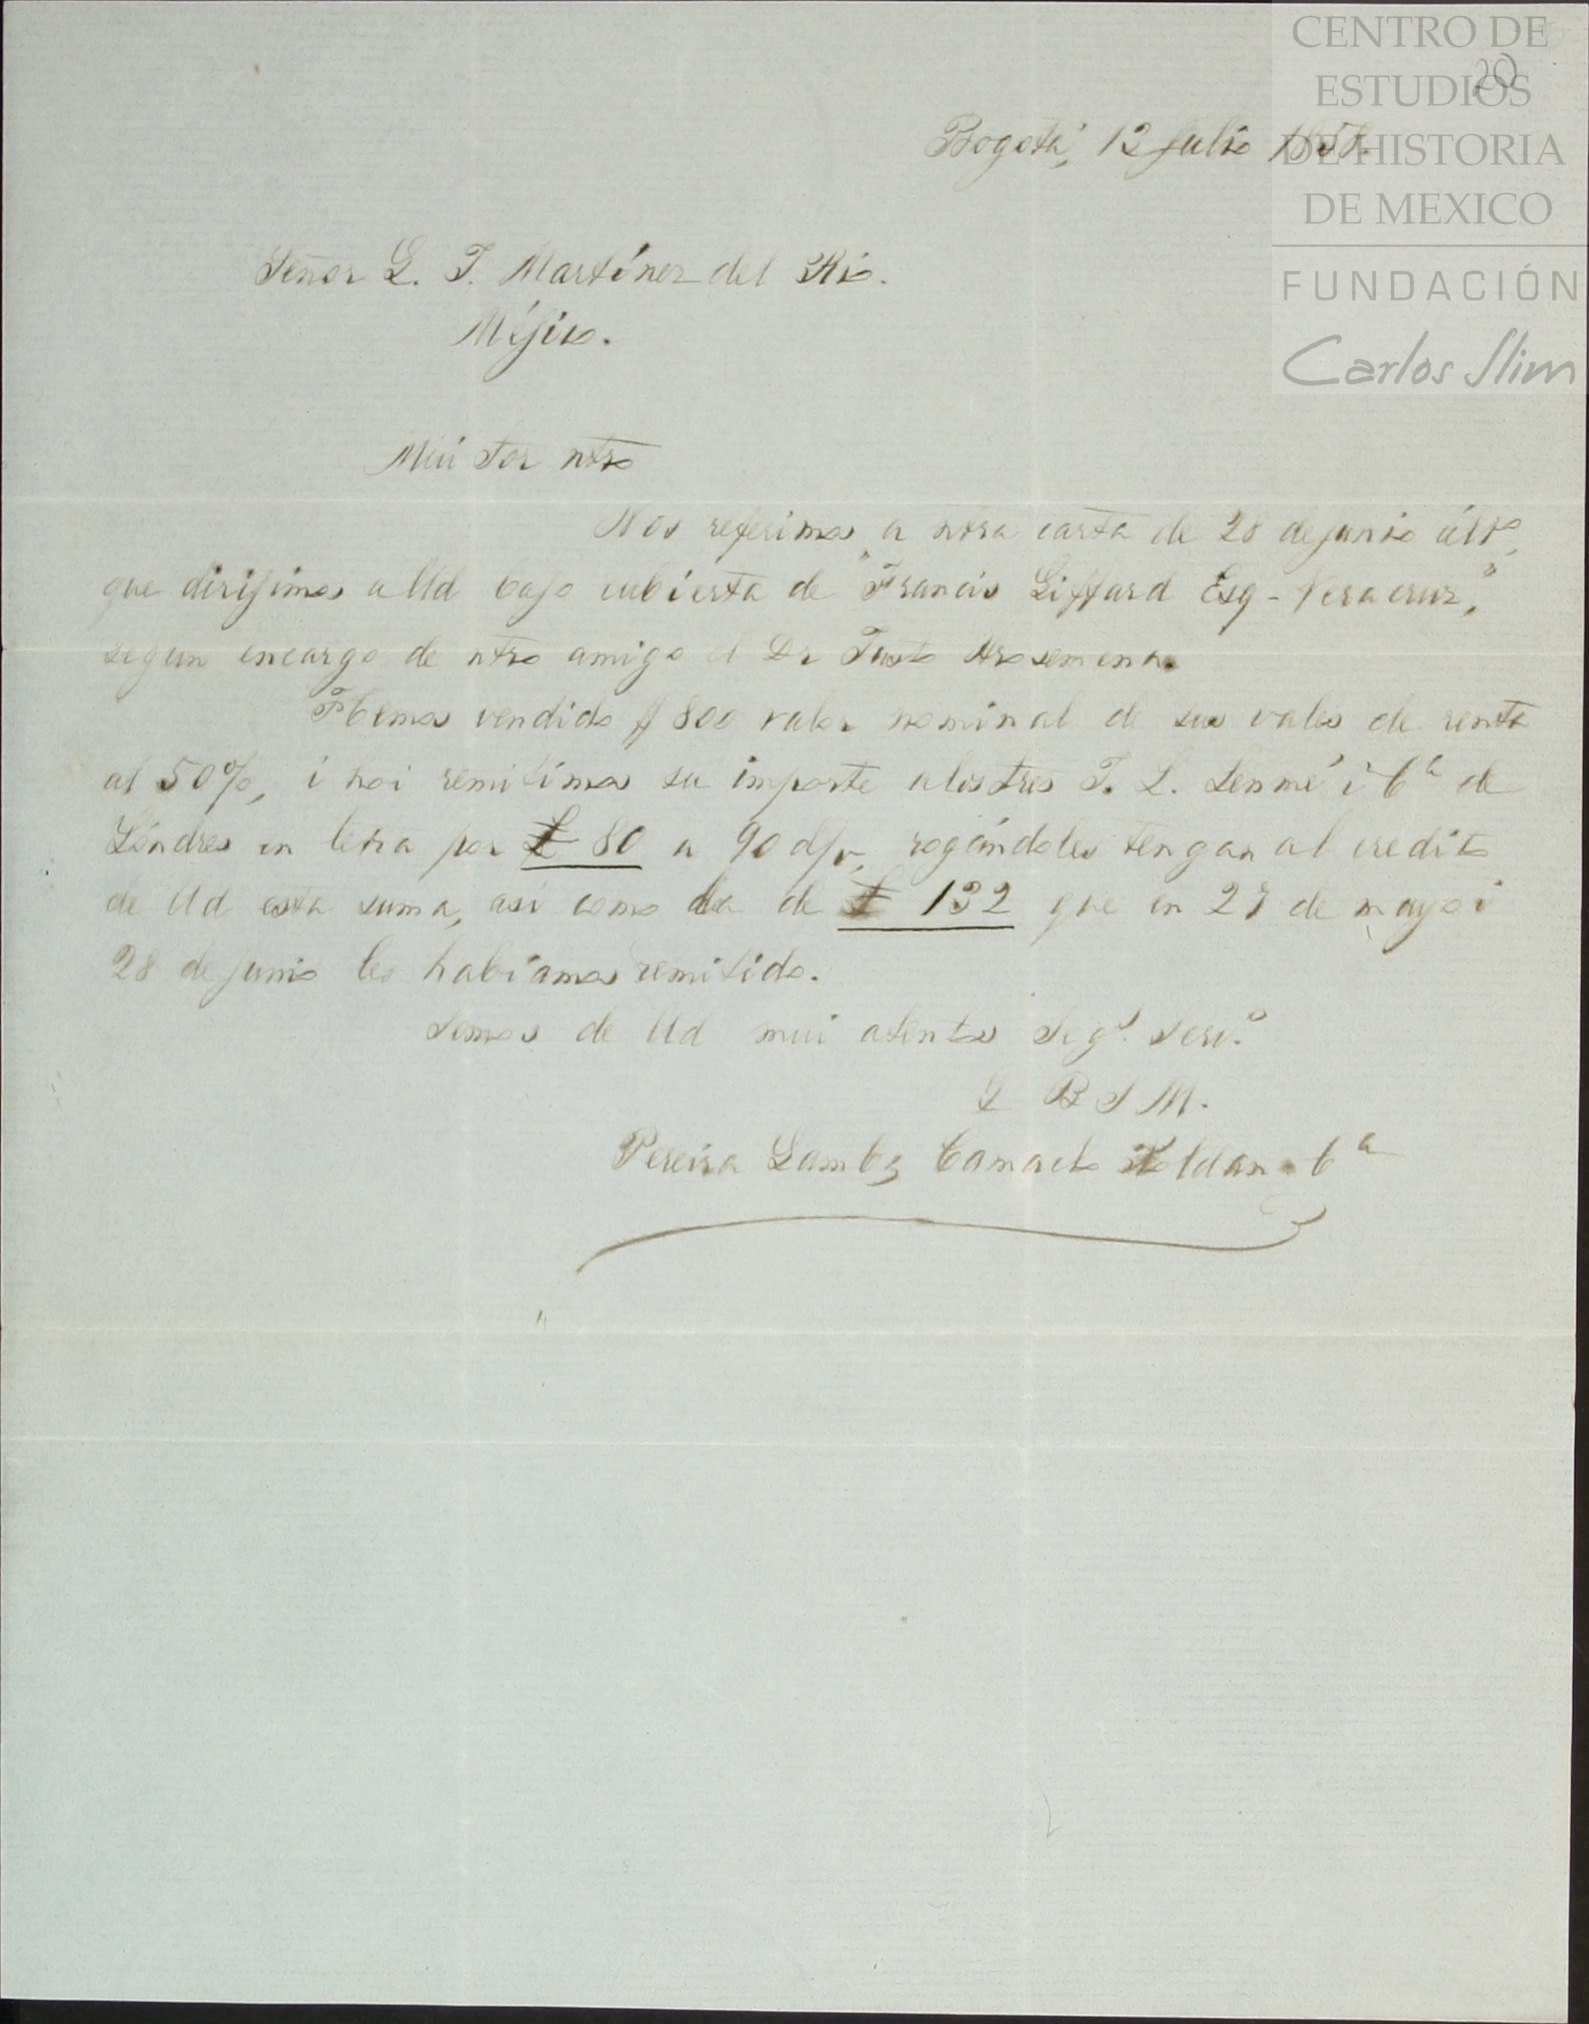 CENTRO DE
ESTUDIOS
DE HISTORIA
DE MEXICO
FUNDACIÓN
Carlos Slim
20
Bogotá, 12 Julio
Señor L. T. Martínez del Rio.
Méjico.
Mui Sor ntro
Nos referimos a ntra carta de 28 de junio últo,
que dirijimos a Ud bajo cubierta de "Francis Giffard Esq - Veracruz,"
segun encargo de ntro amigo el Dr Justo Arosemena.
Hemos vendido $ 800 valor nominal de sus vales de renta
al 50%, i hoi remitimos su importe a los Sres J. L. Lemmé i Ca de
Lóndres en letra por £ 80 a 90 d/v, rogándoles tengan al credito
de Ud esta suma, asi como la de £ 132 que en 27 de mayo i
28 de junio les habiamos remitido.
Somos de Ud mui atentos Segs. Servs.
Q B S M.
Pereira Gamba, Camacho Roldan Ca